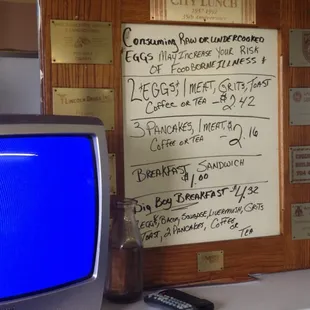 CITY LUNCH
Consuming Raw or undercooked
Eggs May Increase Your Risk
of Foodborne Illness
2 Eggs, 1 Meat, Grits, Toast
Coffee or Tea – 2.42
3 Pancakes, 1 Meat
Coffee or Tea – 2.16
Breakfast Sandwich
$1.00
Big Boy Breakfast – $4.32
Eggs, Bacon, Sausage, Livermush, Grits
Toast, 2 Pancakes, Coffee
or
Tea